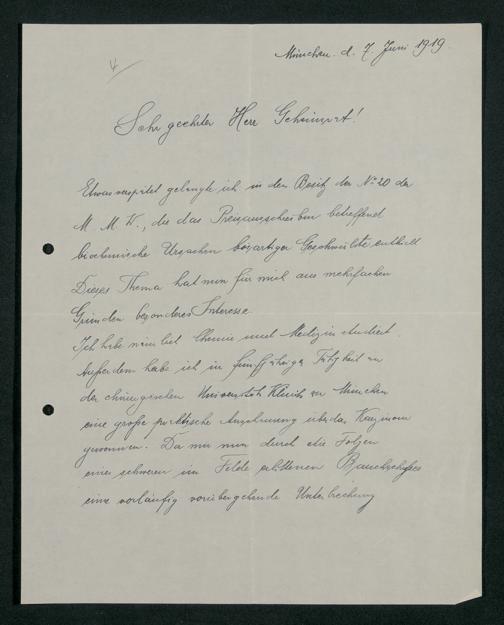 4
München. d. 7. Juni 1919.
Sehr geehrter Herr Geheimrat!
Etwas verspätet gelangte ich in den Besitz der No 20 der
M. M. W., die das Preisausschreiben betreffend
biochemische Ursachen bösartiger Geschwülste enthielt
Dieses Thema hat nun für mich aus mehrfachen
Gründen besonderes Interesse.
Ich habe nämlich Chemie und Medizin studiert.
Außerdem habe ich in fünfjähriger Tätigkeit an
der chirurgischen Universitäts Klinik in München
eine große praktische Anschauung über das Karzinom
gewonnen. Da mir nun durch die Folgen
eines schweren im Felde erlittenen Bauchschußes
eine vorläufig vorübergehende Unterbrechung